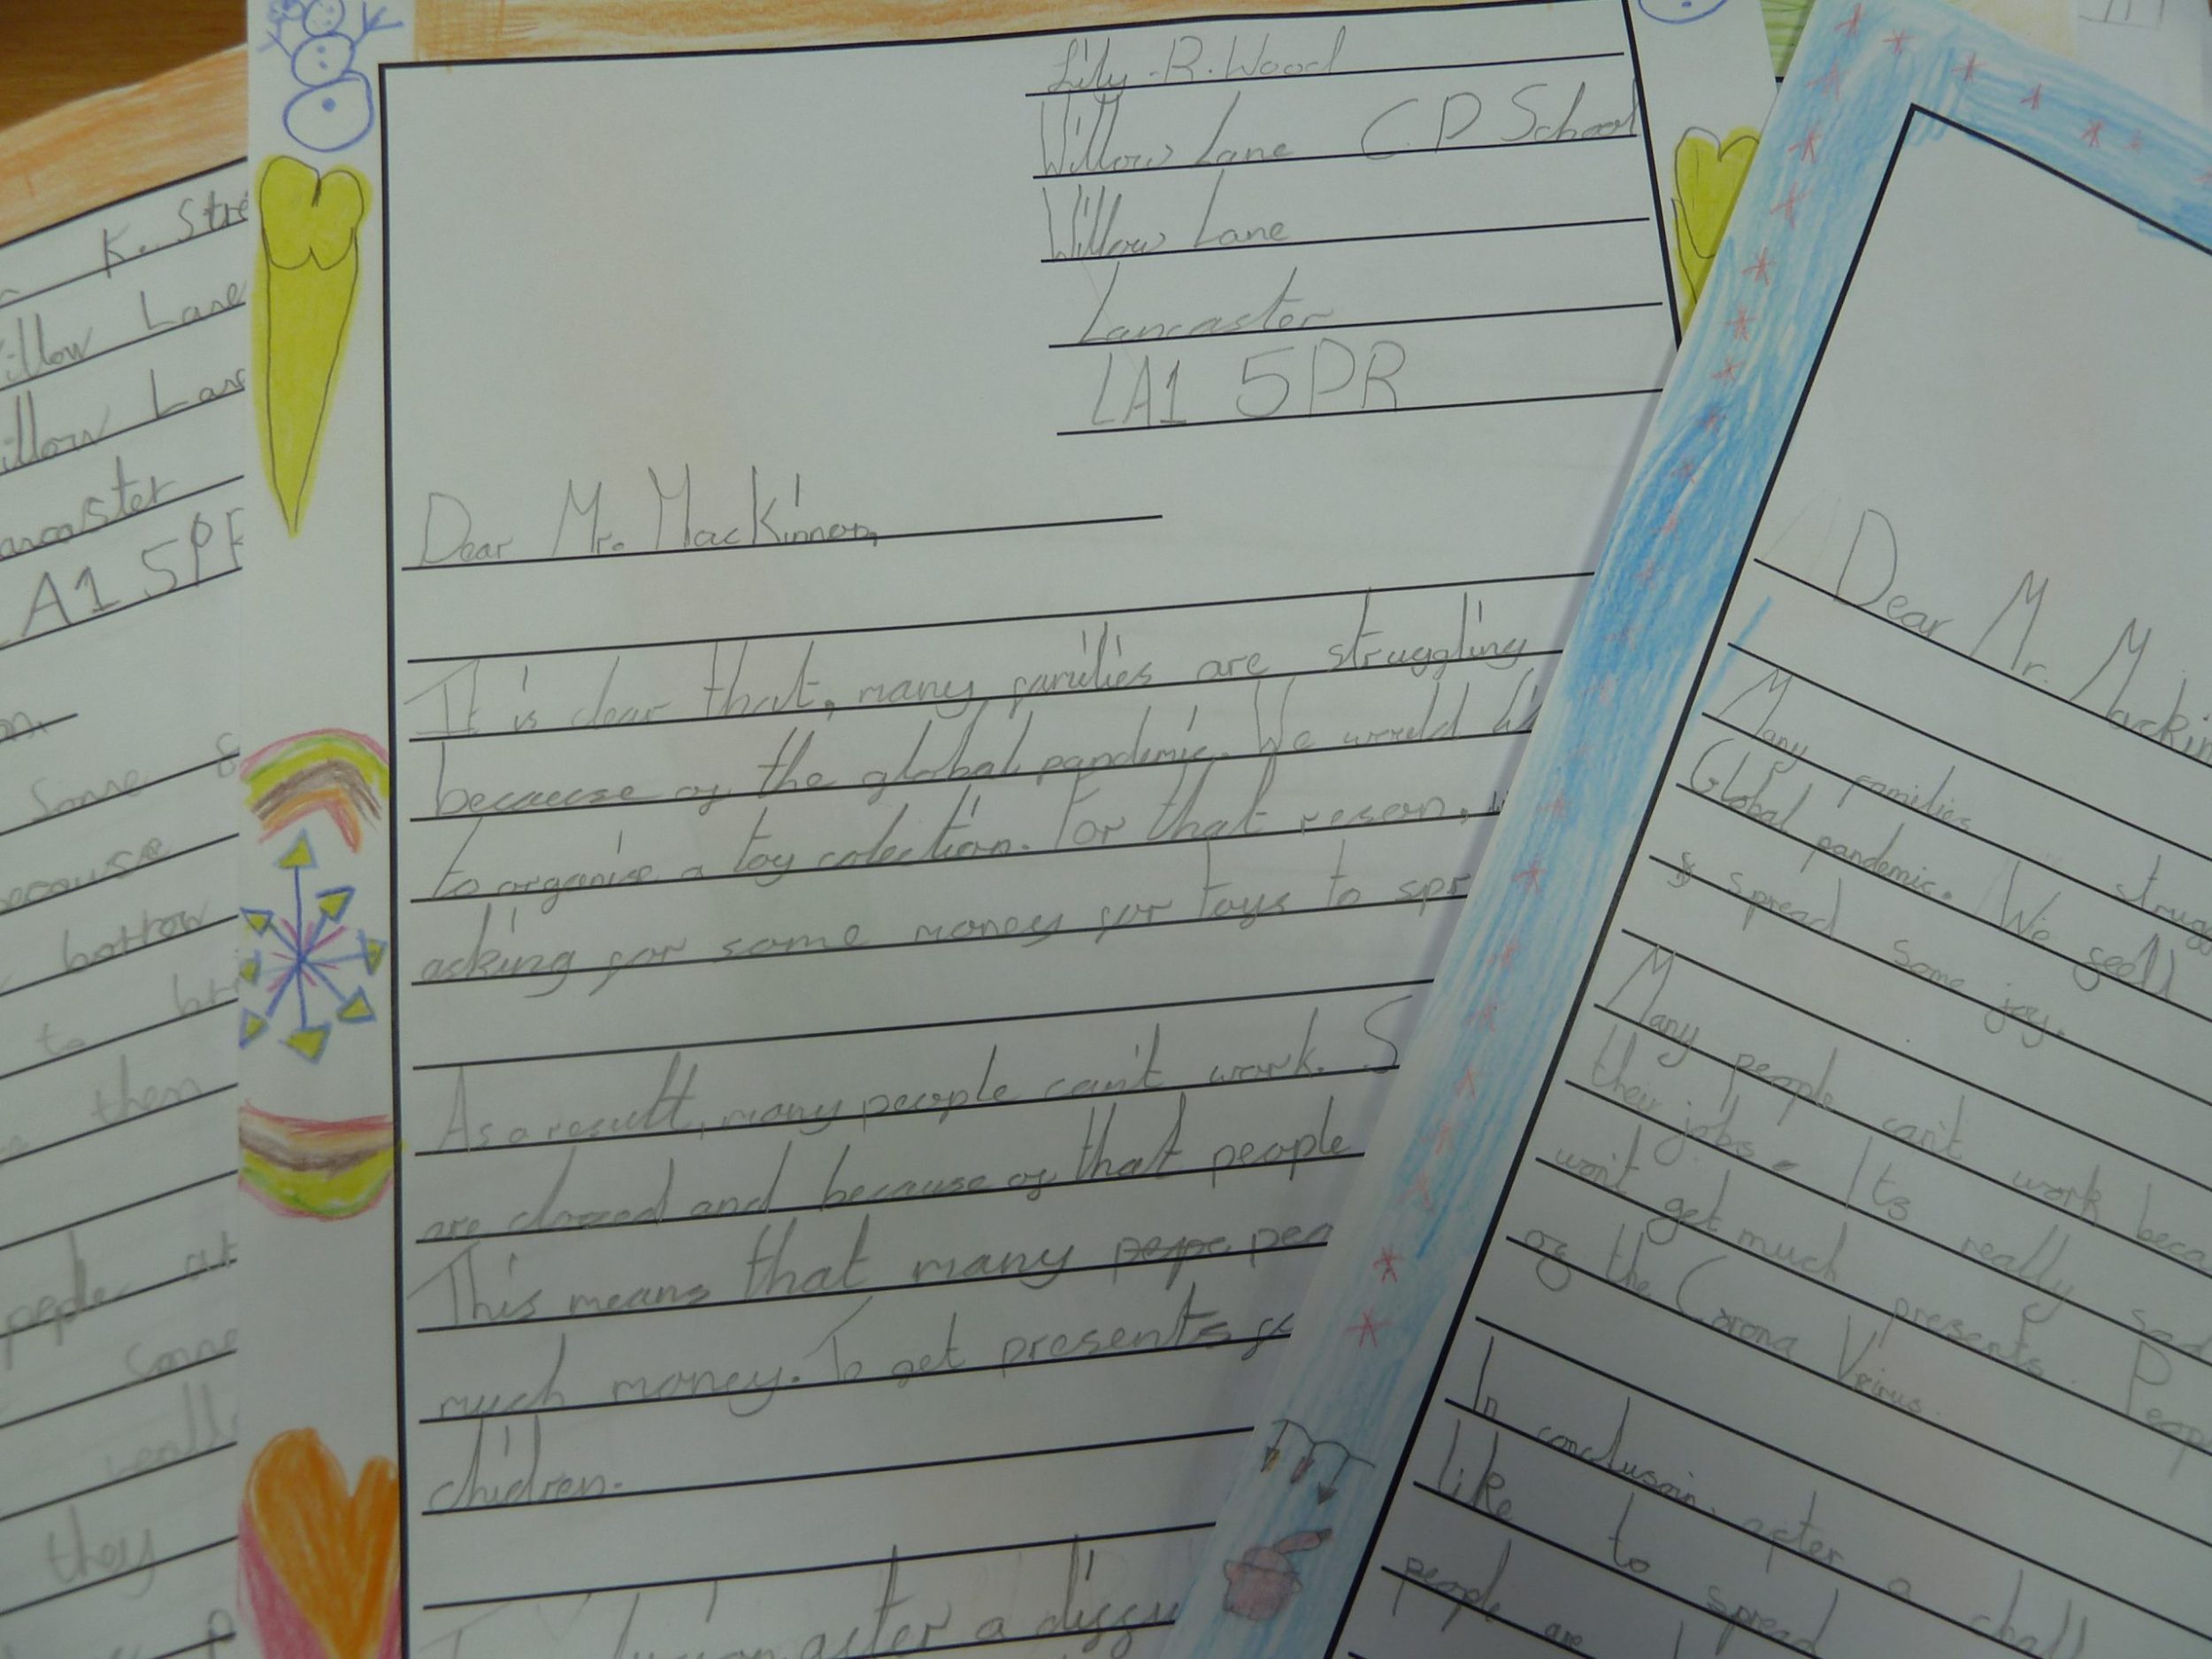 K. Str
illow Lane
illow Lane
ancaster
A1 5PR
on.
Some
because
borrow
to
them
people
some
reall
they
Lily-R.Wood
Willow Lane C.P School
Willow Lane
Lancaster
LA1 5PR
Dear Mr. MacKinnon,
It is clear that, many families are struggling
because of the global pandemic. We would li
to organise a toy colection. For that reson, w
asking for some money for toys to spr
As a result, many people can't work. S
are clozed and because of that people
This means that many pepe peo
much money. To get presents fo
chidren.
after a diffi
Dear Mr. Mackin
Many families strugg
Global pandemic. We feel
spread some joy.
Many people can't work beca
their jobs. Its really sad
won't get much presents. Peop
of the Corona Veirus.
In conclusoin, after a chall
like to spread
people are